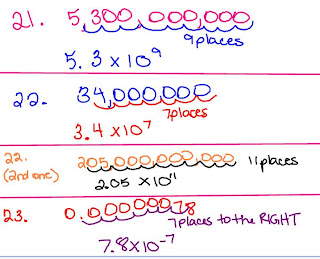 21. 5,300,000,000
9places
5.3 x 10⁹
22. 34,000,000
7places
3.4 x 10⁷
22. 205,000,000,000 11 places
(2nd one)
2.05 x 10¹¹
23. 0.00000078
7places to the RIGHT
7.8x10⁻⁷